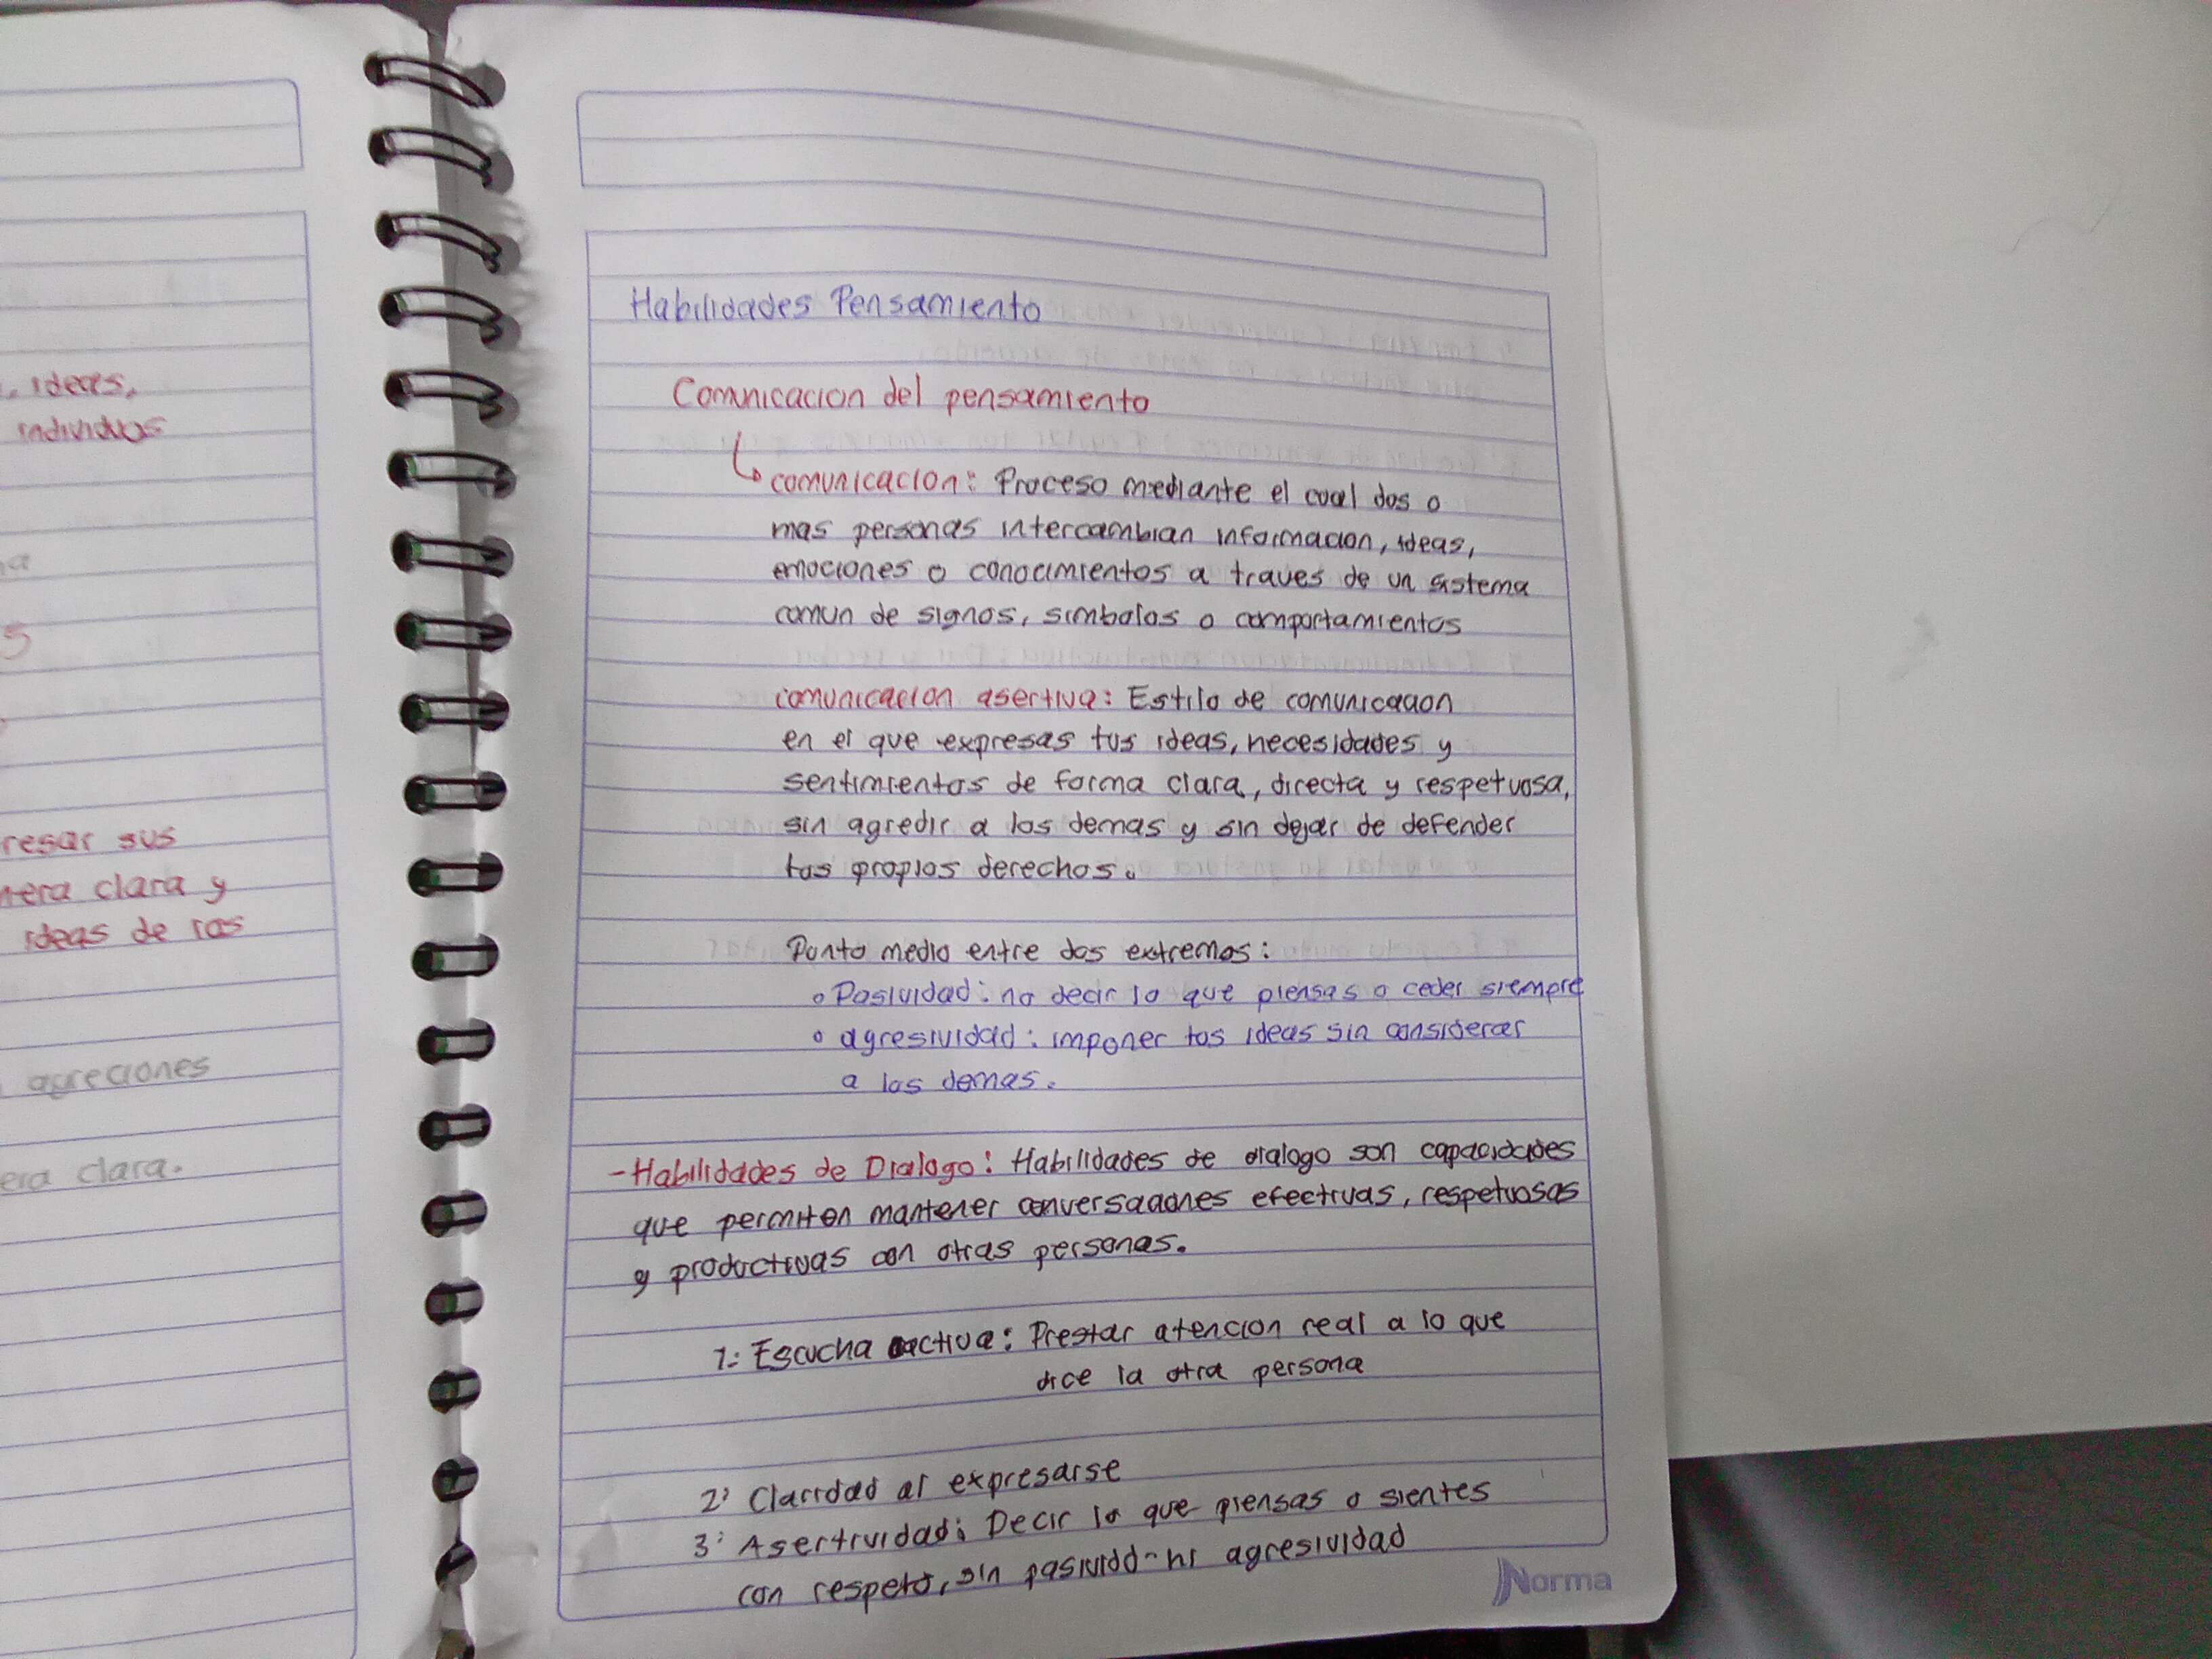 , ideas,
individuos
resar sus
era clara y
ideas de las
agreciones
era clara.
Habilidades Pensamiento
Comunicacion del pensamiento
comunicacion: Proceso mediante el cual dos o
mas personas intercambian informacion, ideas,
emociones o conocimientos a traves de un sistema
comun de signos, simbolos o comportamientos
comunicacion asertiva: Estilo de comunicacion
en el que expresas tus ideas, necesidades y
sentimientos de forma clara, directa y respetuosa,
sin agredir a los demas y sin dejar de defender
tus propios derechos.
Punto medio entre dos extremos:
o Pasividad: no decir lo que piensas o ceder siempre
o agresividad: imponer tus ideas sin considerar
a los demas.
- Habilidades de Dialogo: Habilidades de dialogo son capacidades
que permiten mantener conversaciones efectivas, respetuosas
y productivas con otras personas.
1: Escucha activa: Prestar atencion real a lo que
dice la otra persona
2: Claridad al expresarse
3: Asertividad: Decir lo que piensas o sientes
con respeto, sin pasividd- ni agresividad
Norma